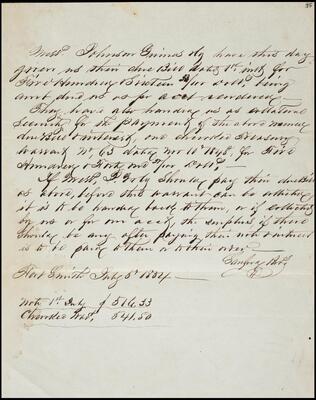 Messrs Johnson Grimes & Co have this day
given us their due Bill dated 1st inst for
Five Hundred Sixteen 33/100 Dolls, being
am't due us as per a/cct rendered.
They have also handed us as Collateral
Security for the payment of the above named
due Bill & interest, one Cherokee Treasury
Warrant No 63 dated Nov 10th 1848, for Five
Hundred & Forty one 50/100 Dolls,
If Messrs J G & Co should pay their due Bill
as above, before this warrant can be collected
it is to be handed back to them, or if collected
by us or for our acct, the surplus if there
should be any after paying their note & interest
is to be paid to them or to their order
Fort Smith July 5th 1854
Note 1st July $516.33
Cherokee Wart, 541.50